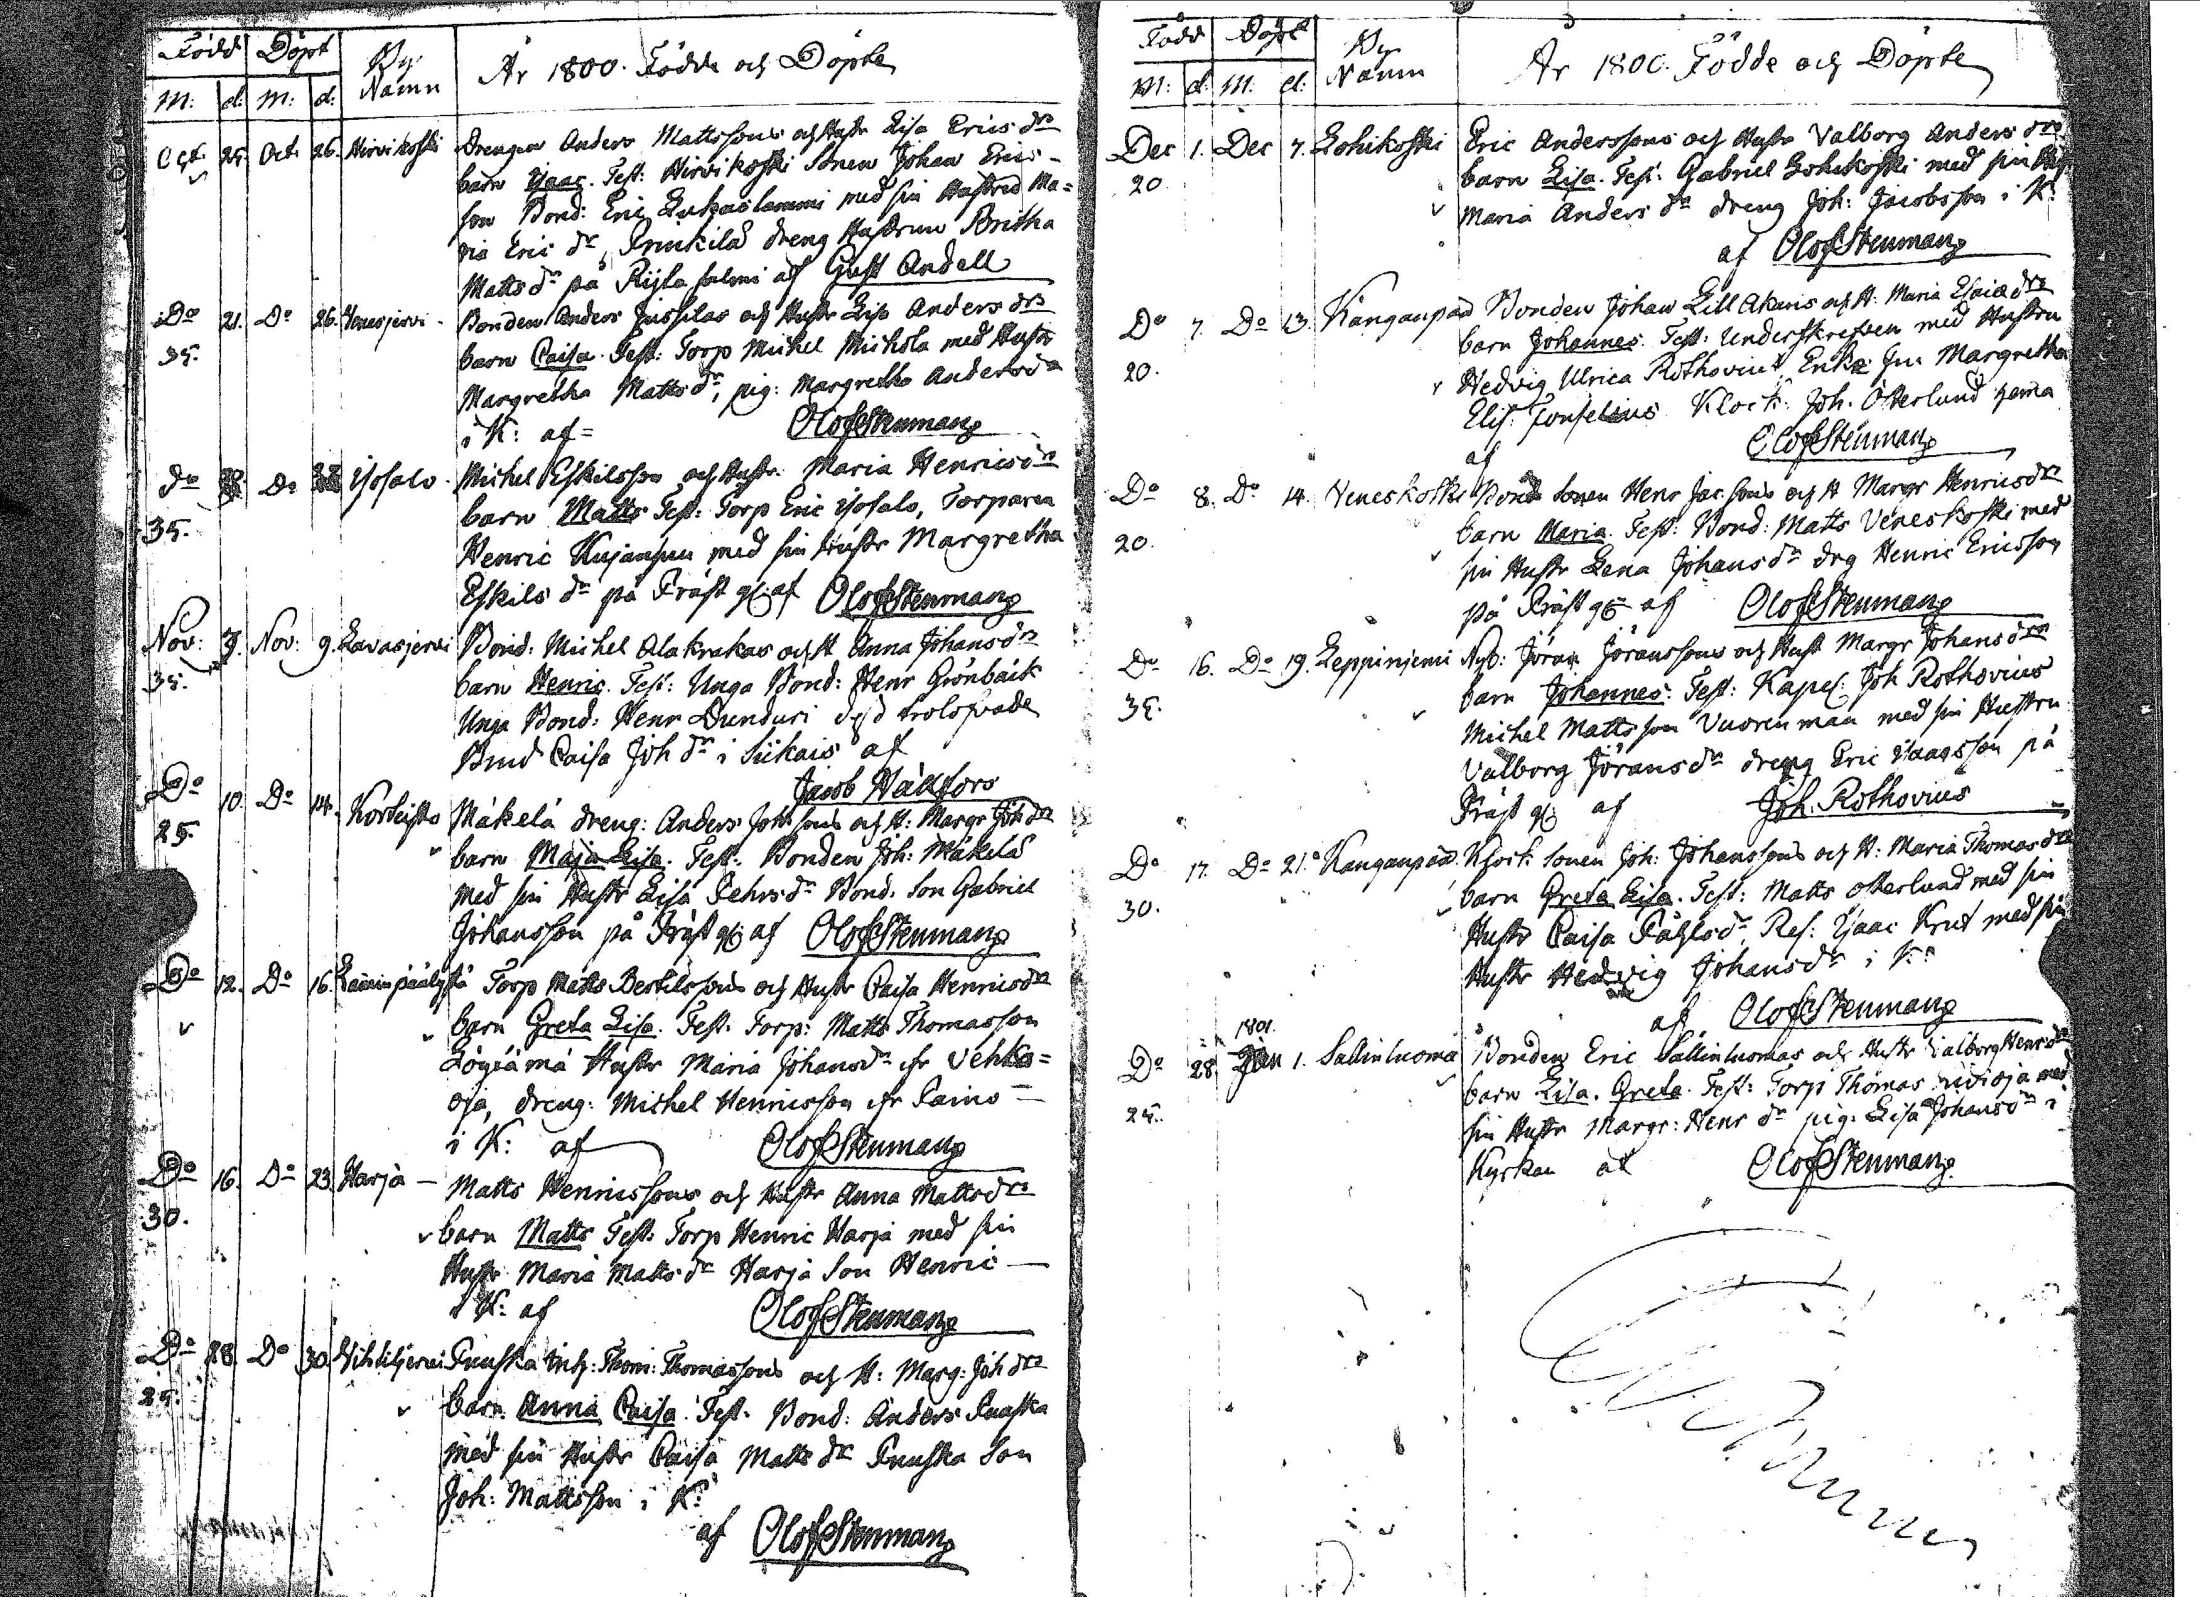 Född Döpt By Namn År 1800. Födde och Döpte
M: d: M: d:
Oct 25. Oct 26. Hirvikoski Drengen Anders Mattssons och Hustr Lisa Erics dr
barn Isaac. Test: Hirvikoski Sonen Johan Erics-
son Bond: Eric med sin Hustru Ma=
ria Eric dr, dreng Hustrun Britha
Matts dr på af Gust Andell
Do 21. Do 26. Venesjervi Bonden Anders Jussilas och Hustr Lisa Anders dr
35. barn Caisa. Test: Torp Michel Mickola med Hustr
Margretha Matts dr, pig: Margretha Anders dr
i K: af = Olof Stenman
do Do Ylosalo Michel Eskilsson och Hustr. Maria Henrics dr
35. barn Matts Test: Torp Eric Ylosalo, Torparen
Henric Kujanpuu med sin Hustr Margretha
Eskils dr på Präst gl: af Olof Stenman
Nov: Nov: 9. Lavasjervi Bond: Michel Alakrakas och H Anna Johans dr
35. barn Henric. Test: Unga Bond: Henr Grönbäck
Unga Bond: Henr Dunduri dess trolofvade
Brud Caisa Joh dr i Siikais af
Jacob Hällfors
Do 10. Do 14. Korteisto Mäkelä dreng: Anders Joh sons och H: Margr Joh dr
25. barn Maja Lisa. Test: Bonden Joh: Mäkelä
med sin Hustr Lisa Pehrs dr Bond. Son Gabriel
Johansson på Präst gl: af Olof Stenman
Do 12. Do 16. Torp Matts Bertilssons och Hustr Caisa Henrics dr
barn Greta Lisa. Test. Torp: Matts Thomasson
Hustr Maria Johans dr ifr Vehka=
oja, dreng: Michel Henricsson ifr Paino
i K: af Olof Stenman
Do 16. Do 23. Harja Matts Henricssons och Hustr Anna Matts dr
30. barn Matts Test: Torp Henric Harja med sin
Hustr Maria Matts dr Harja Son Henric
i K: af Olof Stenman
Do 28. Do 30. Vihtiljervi Puuska Inh: Thom: Thomassons och H: Marg: Joh dr
25. barn Anna Caisa. Test. Bond: Anders Puuska
med sin Hustr Caisa Matts dr Puuska Son
Joh: Mattsson i K:
af Olof Stenman
Född Döpt By Namn År 1800. Födde och Döpte
M: d: M. d:
Dec 1. Dec 7. Lohikoski Eric Anderssons och Hustr Valborg Anders dr
20 barn Lisa. Test: Gabriel Lohikoski med sin
Maria Anders dr dreng Joh: Jacobsson i K:
af Olof Stenman
Do 7. Do 13. Kanganpää Bonden Johan Lill Akaris och H: Maria Esaiæ dr
20. barn Johannes. Test: Underskrefven med Hustru
Hedvig Ulrica Rothovius, Enke Fru Margretha
Elis: Forselius Klock: Joh. Österlund hema
af Olof Stenman
Do 8. Do 14. Veneskoski Bonde Sonen Henr Jac: sons och H Margr Henrics dr
20. barn Maria. Test: Bond: Matts Veneskoski med
sin Hustr Lena Johans dr drg Henric Ericsson
på Präst gl: af Olof Stenman
Do 16. Do 19. Leppiniemi Nyb: Jöran Jöranssons och Hust Margr Johans dr
35. barn Johannes: Test: Kapel: Joh Rothovius
Michel Mattsson Vuorenmaa med sin Hustru
Valborg Jörans dr dreng Eric Isaacsson på
Präst gl: af Joh. Rothovius
Do 17. Do 21. Kanganpää. Klock: Sonen Joh: Johanssons och H: Maria Thomas dr
30. barn Greta Lisa. Test: Matts Österlund med sin
Hustr Caisa dr, Res: Isaac Krut med sin
Hustr Hedvig Johans dr i K:
af Olof Stenman
1801.
Do 28 Jan 1. Sallinluoma Bonden Eric Sallinluomas och Hustr Valborg Henrs dr
25. barn Lisa. Greta. Test: Torp Thomas med
sin Hustr Margr: Henr dr pig. Lisa Johans dr i
Kyrkan af Olof Stenman